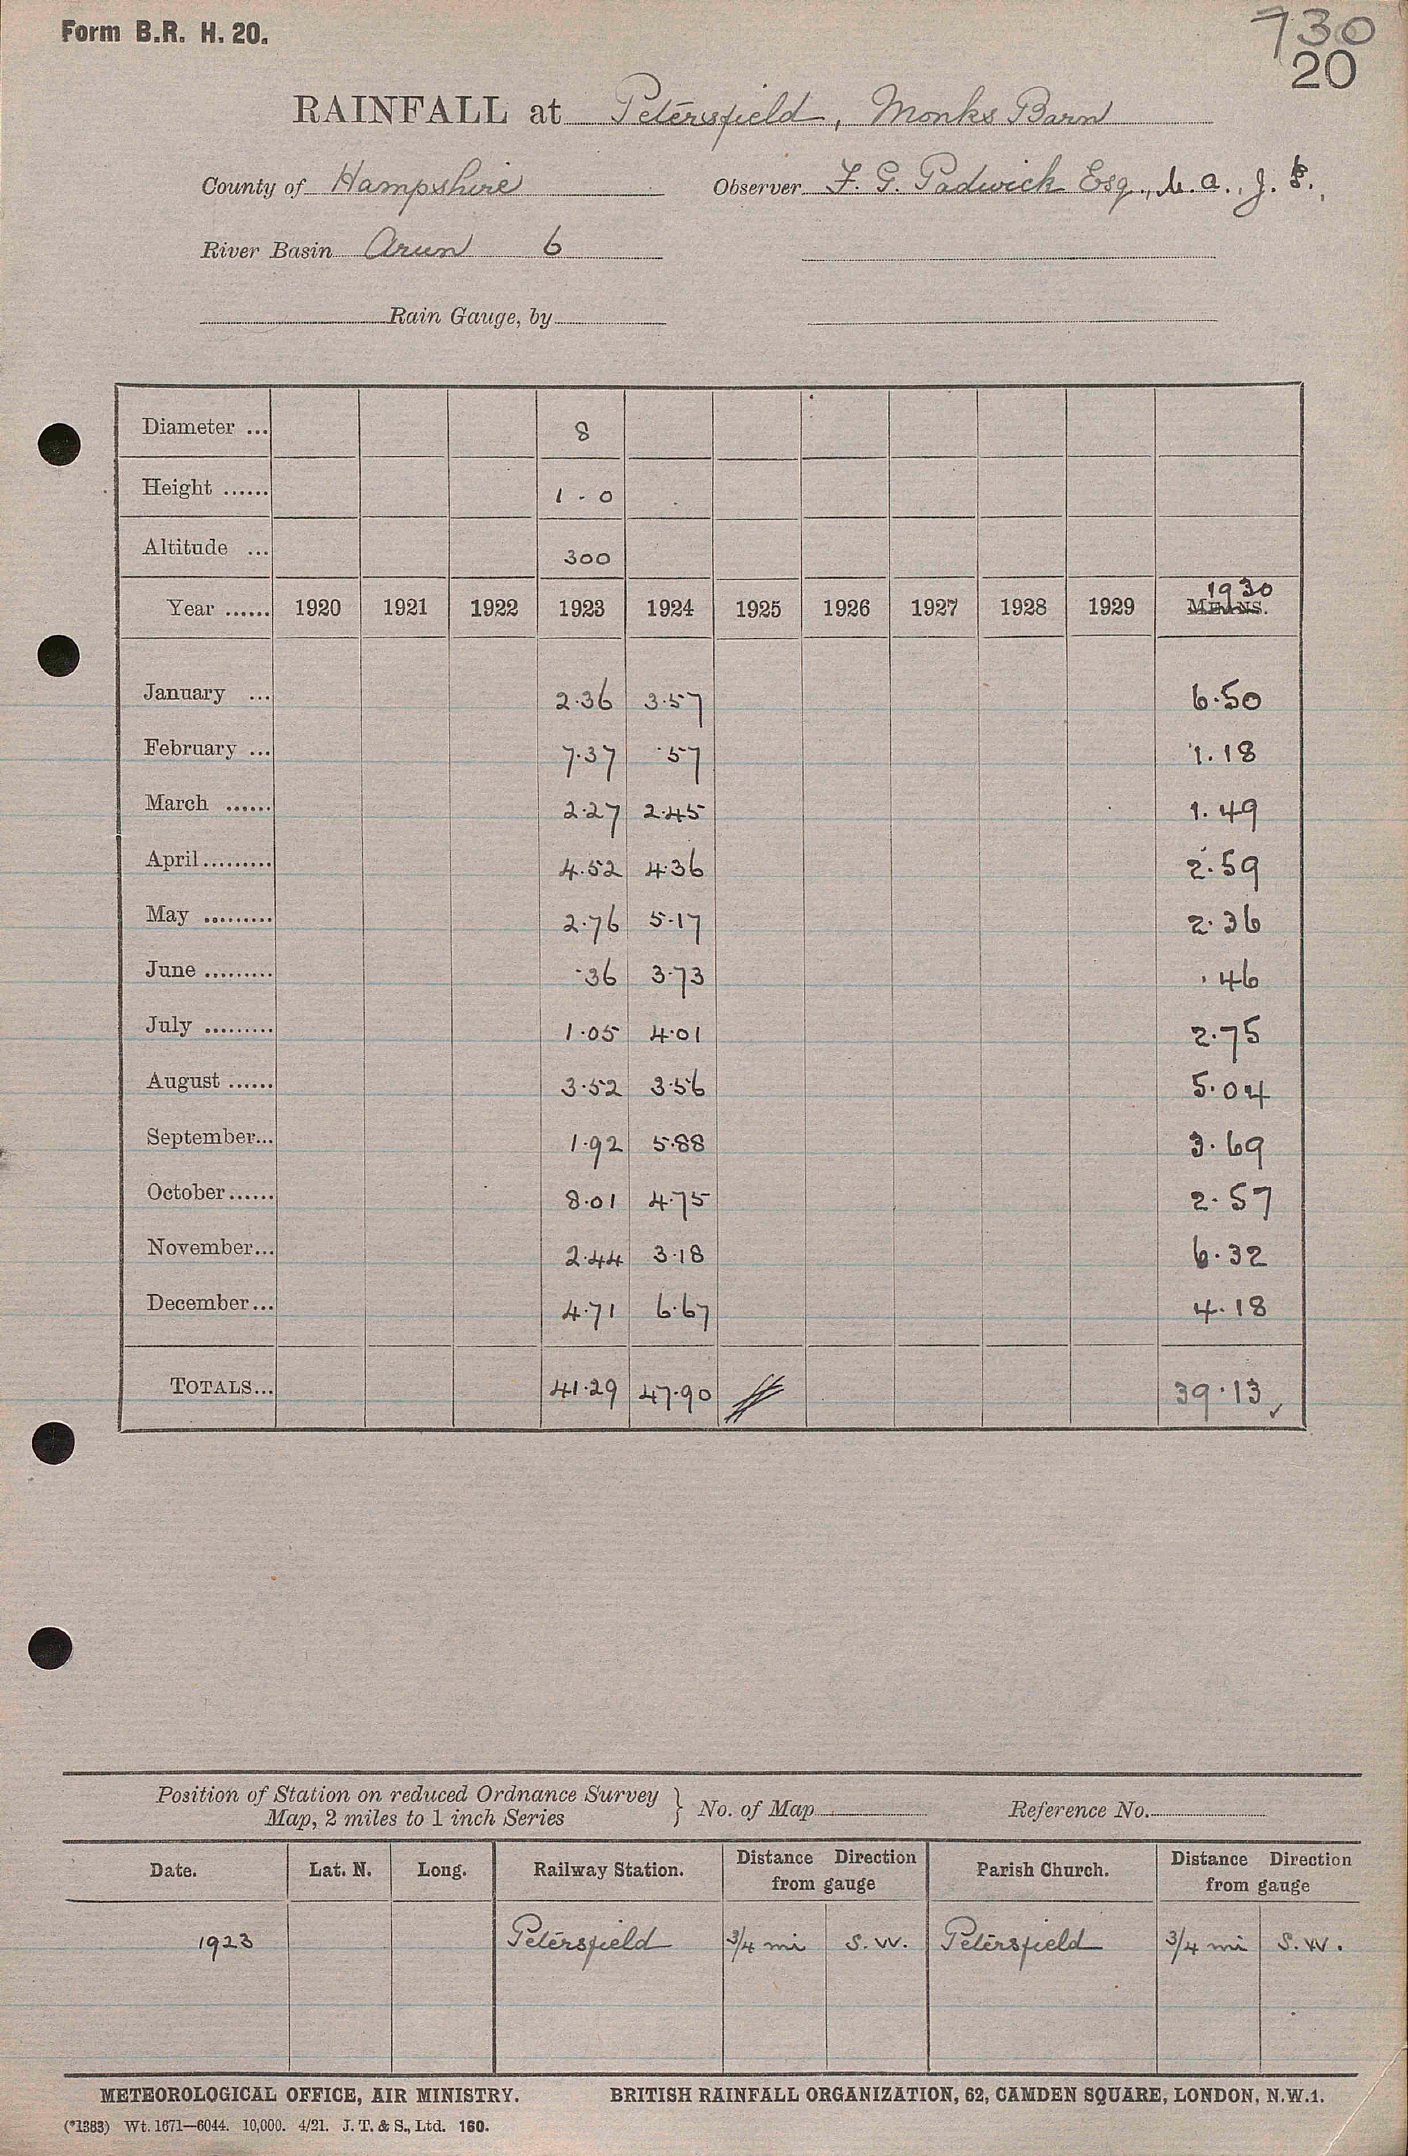 Form B.R. H. 20.
730
20
RAINFALL at Petersfield, Monks Barn
County of Hampshire Observer F. G. Padwick Esq.,
River Basin Arun 6
Rain Gauge, by
Diameter ... 8
Height ...... 1 - 0
Altitude ... 300
Year ...... 1920 1921 1922 1923 1924 1925 1926 1927 1928 1929 MEANS. 1930
January ... 2.36 3.57 6.50
February ... 7.37 .57 1.18
March ...... 2.27 2.45 1.49
April......... 4.52 4.36 2.59
May ......... 2.76 5.17 2.36
June ......... .36 3.73 .46
July ......... 1.05 4.01 2.75
August ...... 3.52 3.56 5.04
September... 1.92 5.88 3.69
October...... 8.01 4.75 2.57
November... 2.44 3.18 6.32
December... 4.71 6.67 4.18
TOTALS... 41.29 47.90 39.13 ✓
Position of Station on reduced Ordnance Survey
Map, 2 miles to 1 inch Series } No. of Map Reference No.
Date. Lat. N. Long. Railway Station. Distance Direction from gauge Parish Church. Distance Direction from gauge
1923 Petersfield 3/4 mi S.W. Petersfield 3/4 mi S.W.
METEOROLOGICAL OFFICE, AIR MINISTRY. BRITISH RAINFALL ORGANIZATION, 62, CAMDEN SQUARE, LONDON, N.W.1.
(*1383) Wt. 1671—6044. 10,000. 4/21. J. T. & S., Ltd. 160.